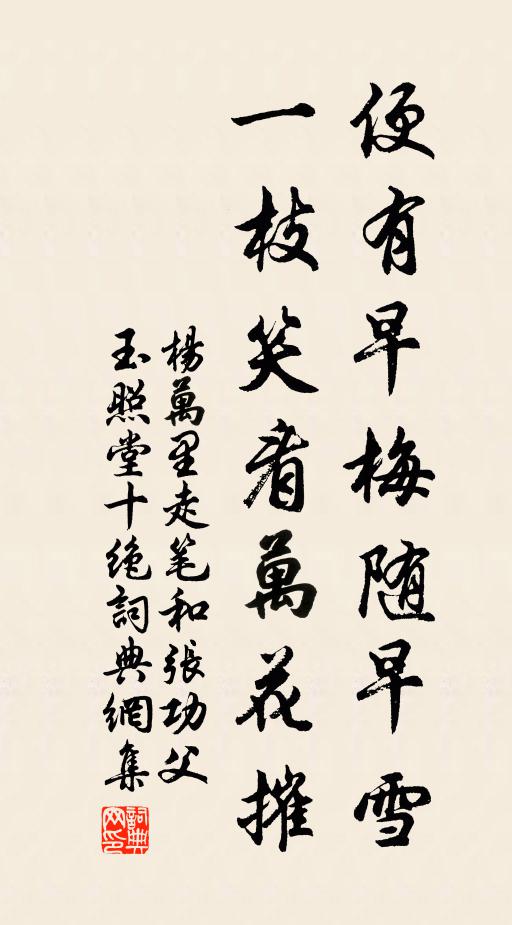 便有早梅随早雪
一枝笑看萬花摧
楊萬里走笔和張功父
玉照堂十绝詞典網集
詞典网印